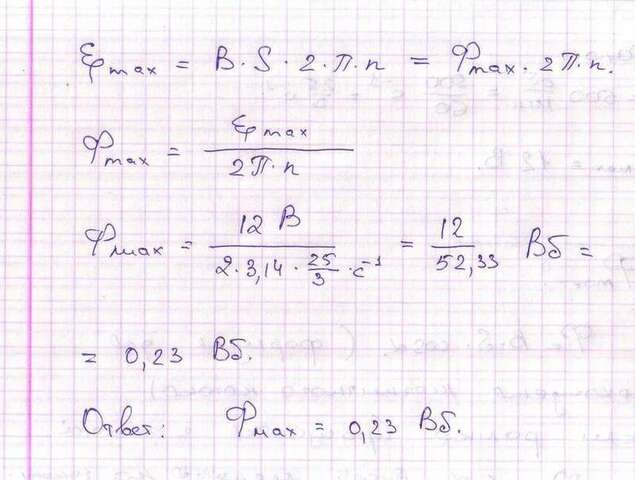 Ɛmax = B·S·2·П·n = Фmax·2П·n.
Фmax = Ɛmax / 2П·n
Фmax = 12 В / 2·3,14·25/3·c⁻¹ = 12 / 52,33 Вб =
= 0,23 Вб.
Ответ: Фмах = 0,23 Вб.